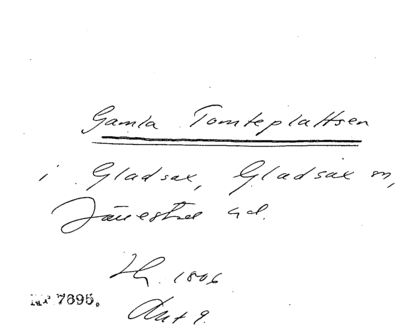 Gamla Tomteplattsen
i Gladsax, Gladsax sn,
Järrestad hd.
1806
Nr 7895.
Akt 9.